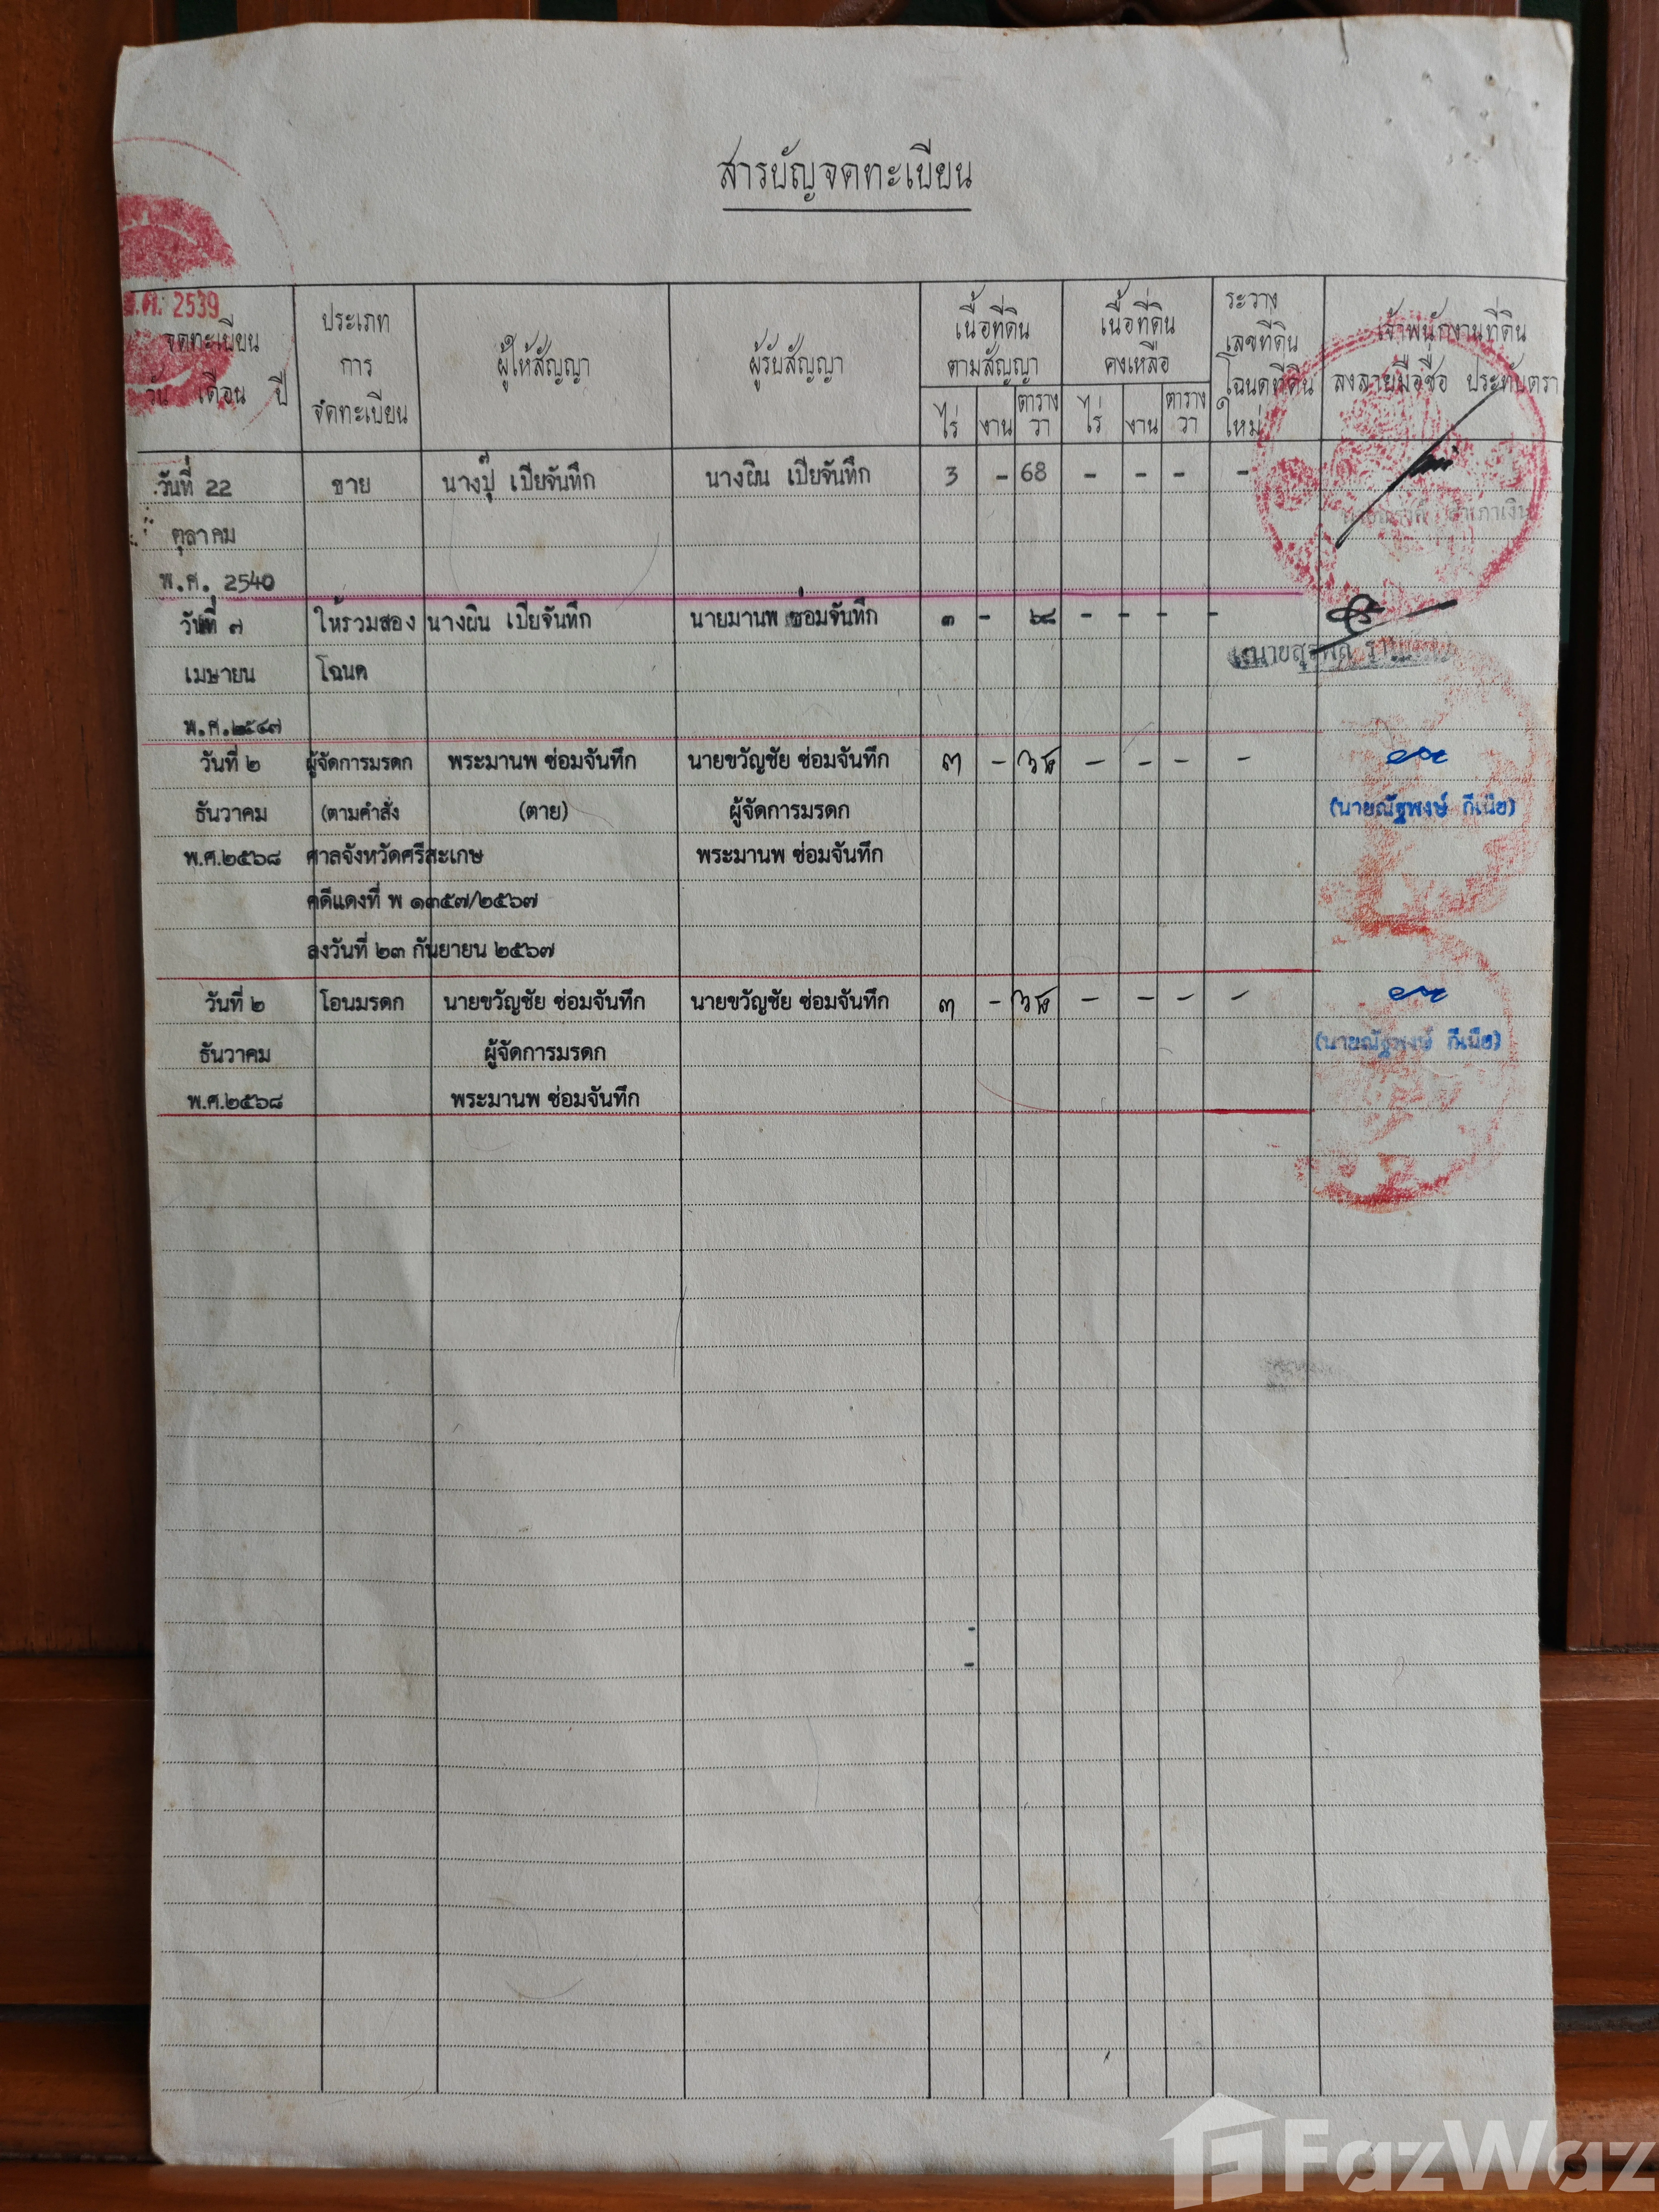 สารบัญจดทะเบียน
พ.ศ. 2539
จดทะเบียน
วัน เดือน ปี
ประเภท
การ
จดทะเบียน
ผู้ให้สัญญา
ผู้รับสัญญา
เนื้อที่ดิน
ตามสัญญา
ไร่ งาน ตาราง
วา
เนื้อที่ดิน
คงเหลือ
ไร่ งาน ตาราง
วา
ระวาง
เลขที่ดิน
โฉนดที่ดิน
ใหม่
เจ้าพนักงานที่ดิน
ลงลายมือชื่อ ประทับตรา
วันที่ 22 ขาย นางปุ๊ เปียจันทึก นางผิน เปียจันทึก 3 - 68 - - - -
ตุลาคม
พ.ศ. 2540
วันที่ ๗ ให้รวมสอง นางผิน เปียจันทึก นายมานพ ซ่อมจันทึก ๓ - ๖๘ - - - -
เมษายน โฉนด
พ.ศ.๒๕๔๗
วันที่ ๒ ผู้จัดการมรดก พระมานพ ซ่อมจันทึก นายขวัญชัย ซ่อมจันทึก ๓ - ๖๘ - - - -
ธันวาคม (ตามคำสั่ง (ตาย) ผู้จัดการมรดก (นายณัฐพงษ์ กีเนีย)
พ.ศ.๒๕๖๘ ศาลจังหวัดศรีสะเกษ พระมานพ ซ่อมจันทึก
คดีแดงที่ พ ๑๓๕๗/๒๕๖๗
ลงวันที่ ๒๓ กันยายน ๒๕๖๗
วันที่ ๒ โอนมรดก นายขวัญชัย ซ่อมจันทึก นายขวัญชัย ซ่อมจันทึก ๓ - ๖๘ - - - -
ธันวาคม ผู้จัดการมรดก (นายณัฐพงษ์ กีเนีย)
พ.ศ.๒๕๖๘ พระมานพ ซ่อมจันทึก
FazWaz